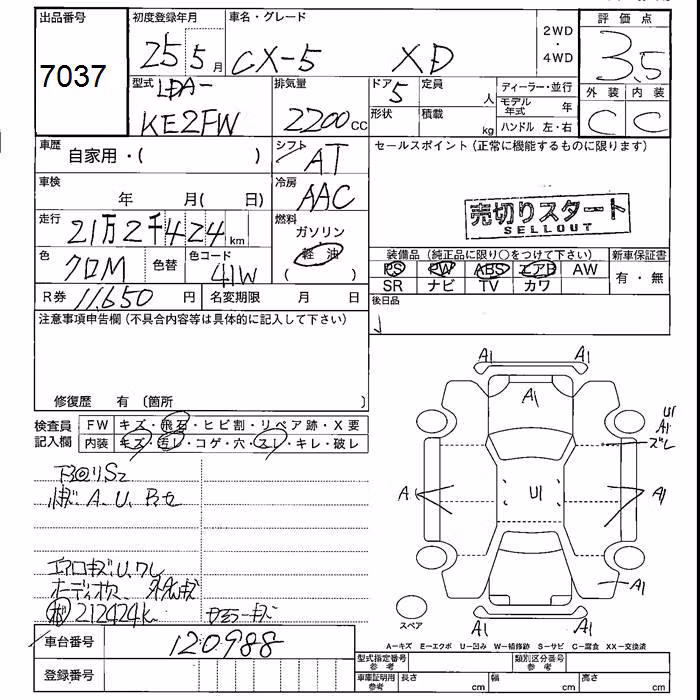 出品番号
7037
初度登録年月
25 5月
車名・グレード
CX-5 XD
2WD・4WD
評価点
3.5
外装 内装
C C
型式
LDA-
KE2FW
排気量
2200cc
ドア
5
定員
人
形状
積載
kg
ディーラー・並行
モデル年式 年
ハンドル 左・右
車歴
自家用・( )
シフト
AT
セールスポイント(正常に機能するものに限ります)
売切りスタート
SELLOUT
車検
年 月( 日)
冷房
AAC
走行
21万2千424km
燃料
ガソリン
軽油
( )
色
クロM
色替
色コード
41W
装備品(純正品に限り○をつけて下さい)
新車保証書
PS PW ABS エアB AW
SR ナビ TV カワ
有・無
R券 11,650円
名変期限 月 日
後日品
注意事項申告欄(不具合内容等は具体的に記入して下さい)
修復歴 有〔箇所 〕
検査員記入欄
FW キズ・飛石・ヒビ割・リペア跡・X要
内装 キズ・汚レ・コゲ・穴・スレ・キレ・破レ
A.U.
212424k
車台番号
120988
登録番号
A1 A1
A1
U1
A1
ズレ
A
U1
A1
A1
A1 A1
スペア
A−キズ E−エクボ U−凹み W−補修跡 S−サビ C−腐食 XX−交換済
型式指定番号
参考
類別区分番号
参考
車庫証明用
参考
長さ cm 幅 cm 高さ cm